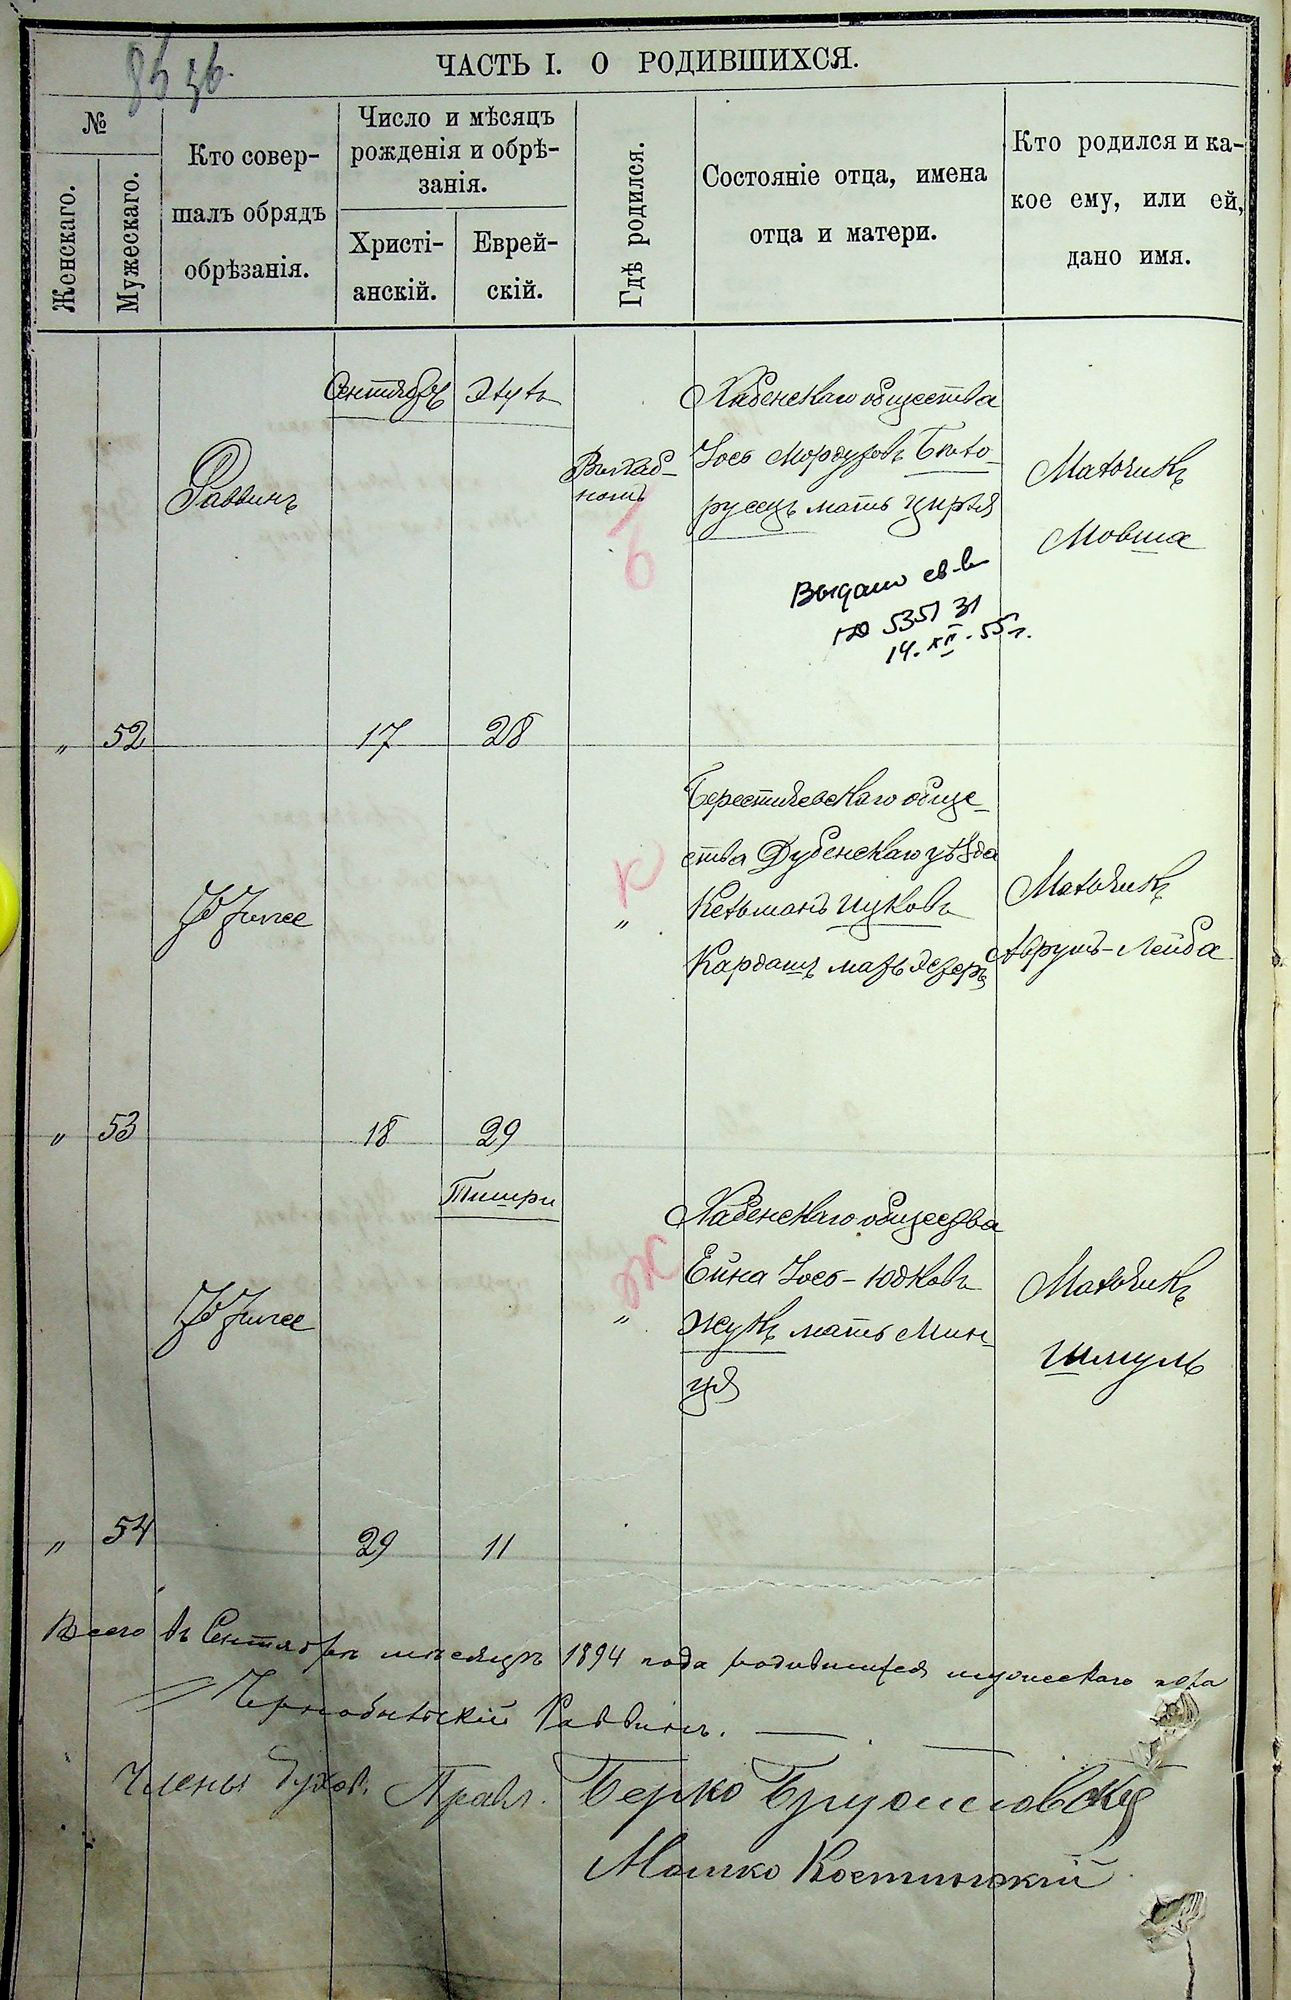 ЧАСТЬ I. О РОДИВШИХСЯ.
№
Женскаго.
Мужескаго.
Кто совер-
шалъ обрядъ
обрѣзанія.
Число и мѣсяцъ
рожденія и обрѣ-
занія.
Христі-
анскій.
Еврей-
скій.
Гдѣ родился.
Состояніе отца, имена
отца и матери.
Кто родился и ка-
кое ему, или ей,
дано имя.
Сентябрь Элулъ
Раввинъ
Хабенскаго общества
Іось Мордуховъ Бѣло-
русецъ мать Цирля
Мальчикъ
Мовша
Выдано св-во
14. XII. 55 г.
" 52 17 28
Берестечевскаго обще-
ства Дубенскаго уѣзда
Кельманъ Ицковъ
Кардашъ мать Эстеръ
К
"
Мальчикъ
Аврумъ-Лейба
" 53 18 29
Тишри
Хабенскаго общества
Ейна Іось-Юдковъ
Жукъ мать Мин-
ця
Ж
"
Мальчикъ
Шмуль
" 54 29 11
Всего въ Сентябрѣ мѣсяцѣ 1894 года родившихся мужескаго пола
Чернобыльскій Раввинъ.
Члены Духов. Правл. Берко
Мошко